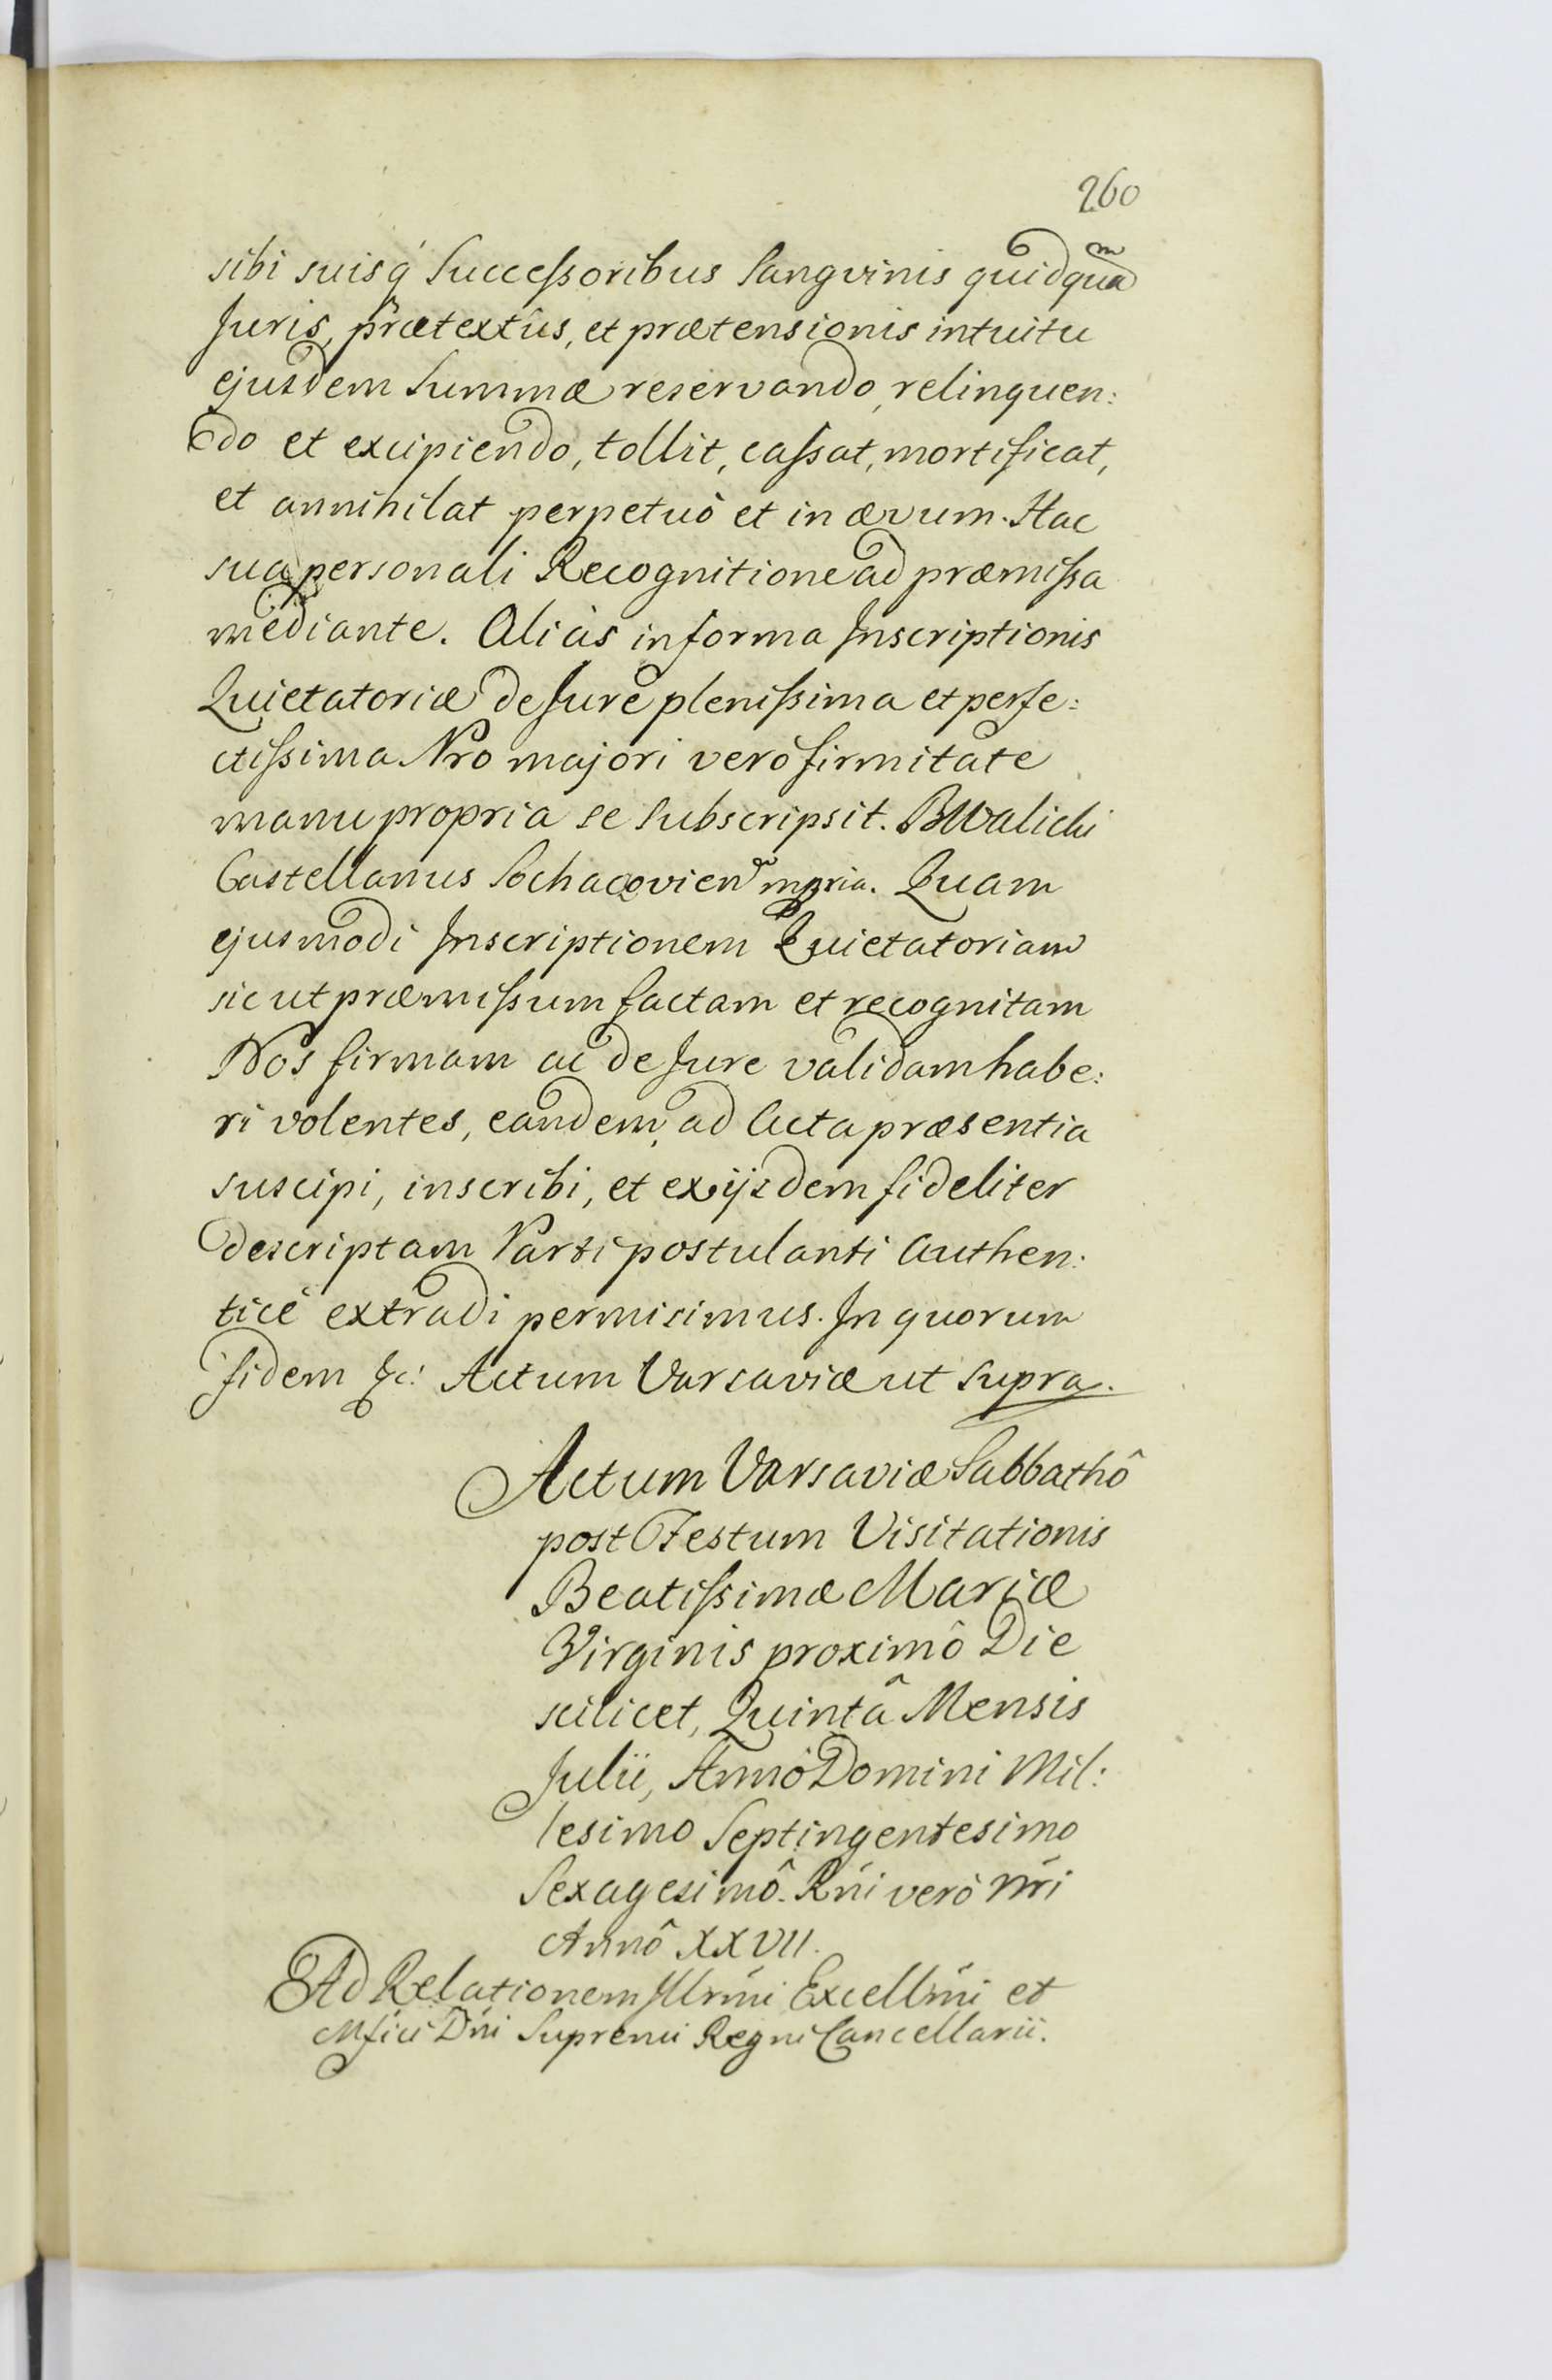 260
sibi suisq́ Successoribus Sangvinis quidquam
Juris, prætextûs, et prætensionis intuitu
ejusdem Summæ reservando, relinquen:
do et excipiendo, tollit, cassat, mortificat,
et annihilat perpetuò et in ævum. Hac
sua personali Recognitione ad præmissa
mediante. Aliàs in forma Inscriptionis
Quietatoriæ de Jure plenissima et perfe:
ctissima Pro majori verò firmitate
manu propria se subscripsit. BWalicki
Castellanus Sochacovien mpria. Quam
ejusmodi Inscriptionem Quietatoriam
sic ut præmissum factam et recognitam
Nos firmam ac de Jure validam habe:
ri volentes, eandem, ad Acta præsentia
suscipi, inscribi, et ex ijsdem fideliter
descriptam Parti postulanti Authen:
ticè extradi permisimus. In quorum
fidem &c: Actum Varsaviæ ut supra.
Actum Varsaviæ Sabbathô
post Festum Visitationis
Beatissimæ Mariæ
Virginis proximô Die
scilicet, Quintâ Mensis
Julii, Annô Domini Mil:
lesimo Septingentesimo
Sexagesimô. Rńi verò Nŕi
Annô XXVII.
Ad Relationem Illrmi Excellmi et
Mfici Dńi Supremi Regni Cancellarii.